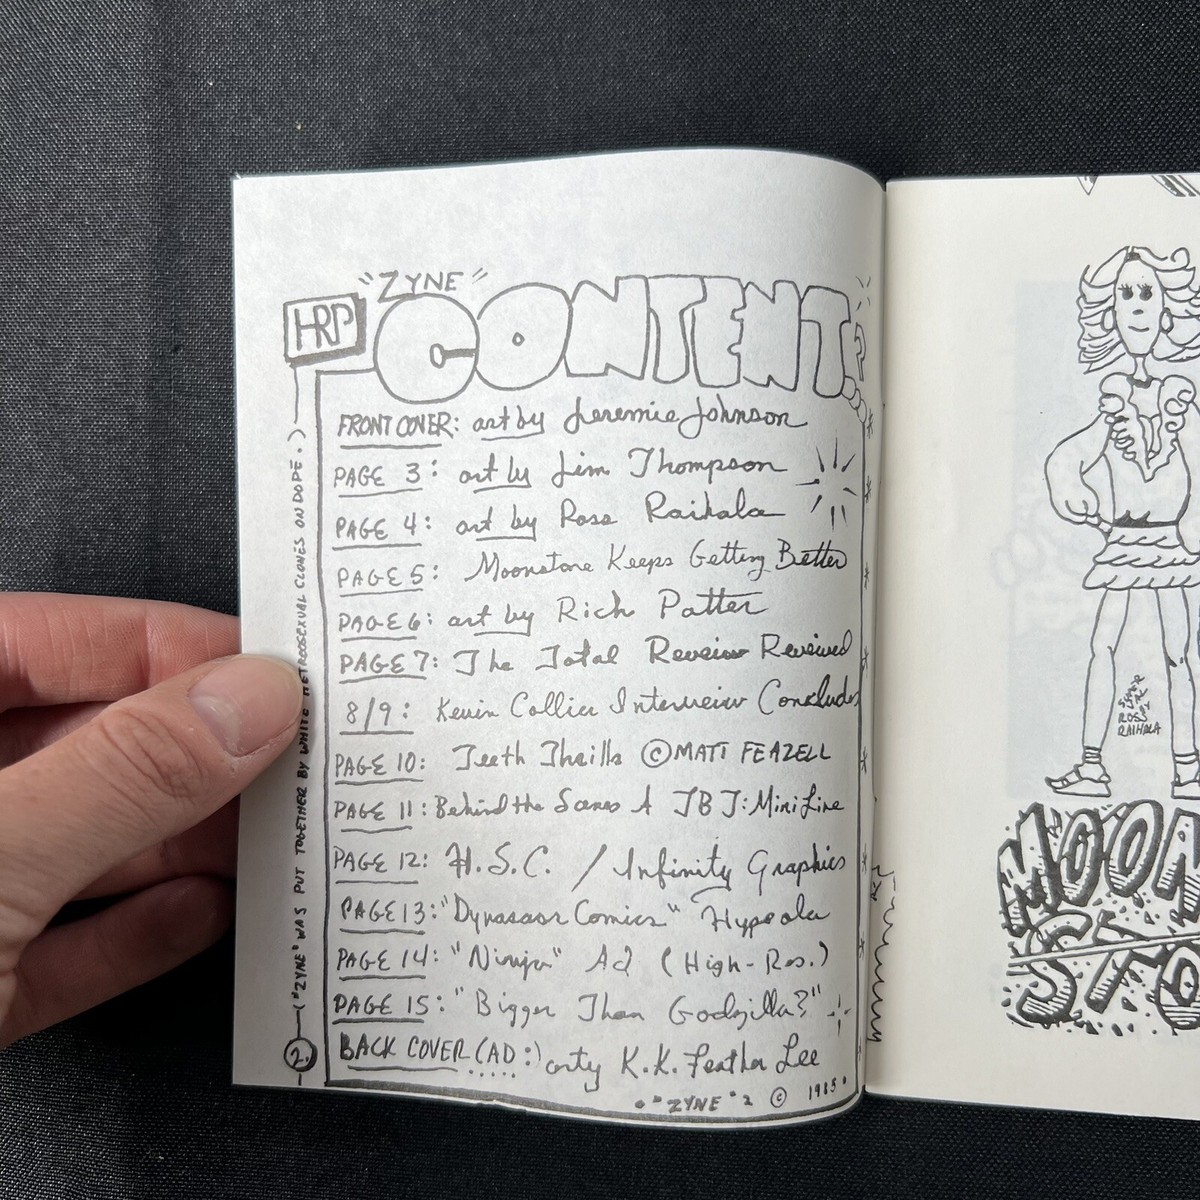 "ZYNE"
HRP
CONTENTS
FRONT COVER: art by Jeremie Johnson
PAGE 3: art by Jim Thompson
PAGE 4: art by Ross Raihala
PAGE 5: Moonstone Keeps Getting Better
PAGE 6: art by Rich Potter
PAGE 7: The Total Reveiw Reveiwed
8/9: Kevin Collier Interveiw Concludes
PAGE 10: Teeth Thrills © MATT FEAZELL
PAGE 11: Behind the Scenes A JBJ: Mini Line
PAGE 12: H.S.C. / Infinity Graphics
PAGE 13: "Dynasaor Comics" Hypeola
PAGE 14: "Ninja" Ad (High-Res.)
PAGE 15: "Bigger Than Godzilla?"
BACK COVER (AD:) arty K.K. Feather Lee
"ZYNE" 2 © 1985
2.
("ZYNE" WAS PUT TOGETHER BY WHITE HETROOSEXUAL CLONES ON DOPE.)
ROSS
RAIHALA
MOON
STO